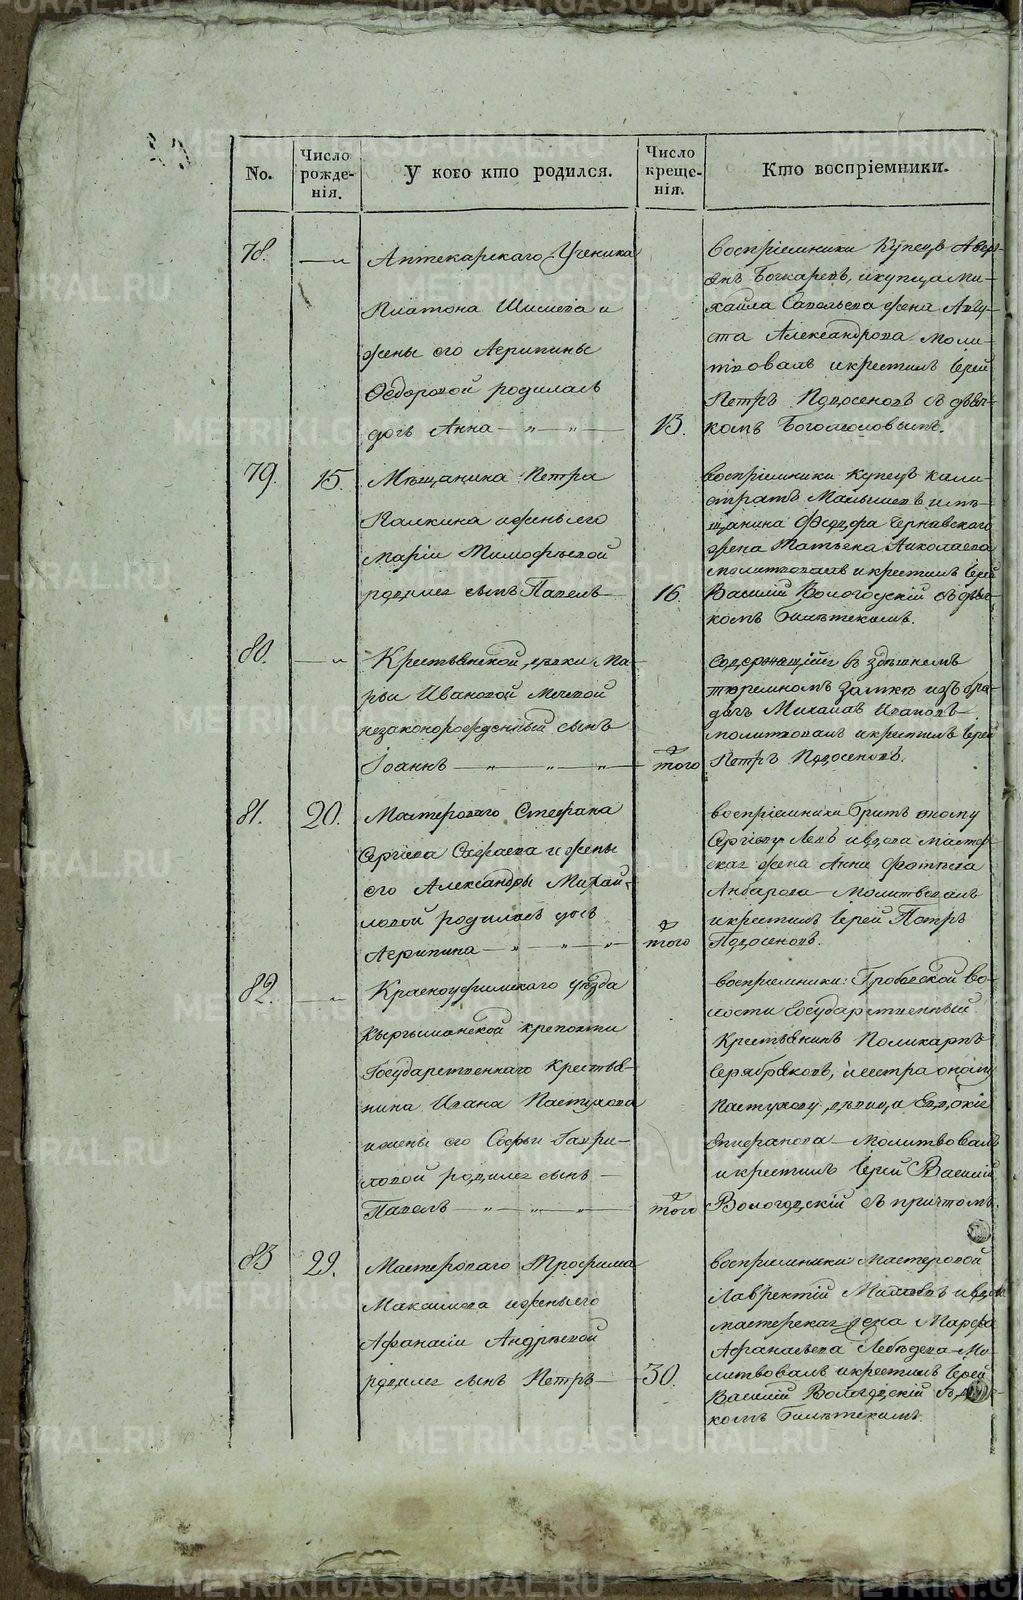 No.
Число рожде-нія.
У кого кто родился.
Число креще-нія.
Кто воспріемники.
78.
Аптекарскаго Ученика
Платона Шишева и
жены его Агрипины
Ѳедоровой родилась
дочь Анна
13.
воспріемники Купецъ Авер-
янъ Бочкаревъ, и купца Ми-
хайла Савельева жена Авгу-
ста Александрова моли-
твовалъ и крестилъ Іерей
Петръ Подосеновъ съ дьяч-
комъ Богомоловымъ.
79.
15.
Мѣщанина Петра
Палкина и жены его
Маріи Тимофѣевой
родился сынъ Павелъ
16.
воспріемники Купецъ Кали-
стратъ Малышевъ и мѣ-
щанина Федора Чернавскаго
жена Татьяна Николаева
молитвовалъ и крестилъ Іерей
Василій Вологодскій съ дьяч-
комъ
80.
Крестьянской дѣвки Ма-
рьи Ивановой
незаконорожденный сынъ
Іоаннъ
того
Содержащійся въ здѣшнемъ
тюремномъ замкѣ изъ бро-
дягъ Михаилъ Ивановъ
молитвовалъ и крестилъ Іерей
Петръ Подосеновъ.
81.
20.
Мастероваго Стефана
Сергіева и жены
его Александры Михай-
ловой родилась дочь
Агрипина
того
воспріемники братъ оному
Сергіеву Левъ и вдова мастер-
ская жена Анна Фотіева
Анбарова молитвовалъ
и крестилъ Іерей Петръ
Подосеновъ.
82.
Красноуфимскаго уѣзда
Кыргышанской крепости
Государственнаго Крестья-
нина Ивана Пастухова
и жены его Софьи Гаври-
ловой родился сынъ
Павелъ
того
воспріемники: Гробовской во-
лости Государственный
Крестьянинъ Поликарпъ
Серябряковъ, и сестра оному
Пастухову дѣвица Евдокія
Епифанова молитвовалъ
и крестилъ Іерей Василій
Вологодскій съ причтомъ.
83
29.
Мастероваго Трофима
Максимова и жены его
Афанасіи Андрѣевой
родился сынъ Петръ
30.
воспріемники Мастеровой
Лаврентій и вдова
мастерская жена Марфа
Афанасьева Лебѣдева мо-
литвовалъ и крестилъ Іерей
Василій Вологодскій
комъ
METRIKI.GASO-URAL.RU